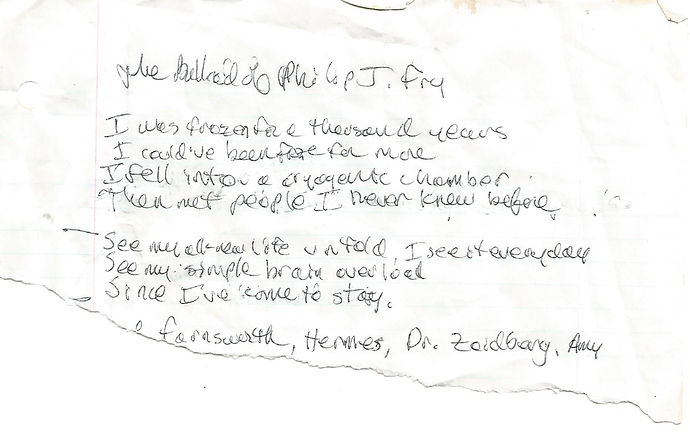 The Ballad of Philip J. Fry
I was frozen for a thousand years
I could've been for more
I fell into a cryogenic chamber
Then met people I never knew before
See my all-new life unfold, I see it everyday
See my simple brain overload
Since I've come to stay.
Farnsworth, Hermes, Dr. Zoidberg, Amy